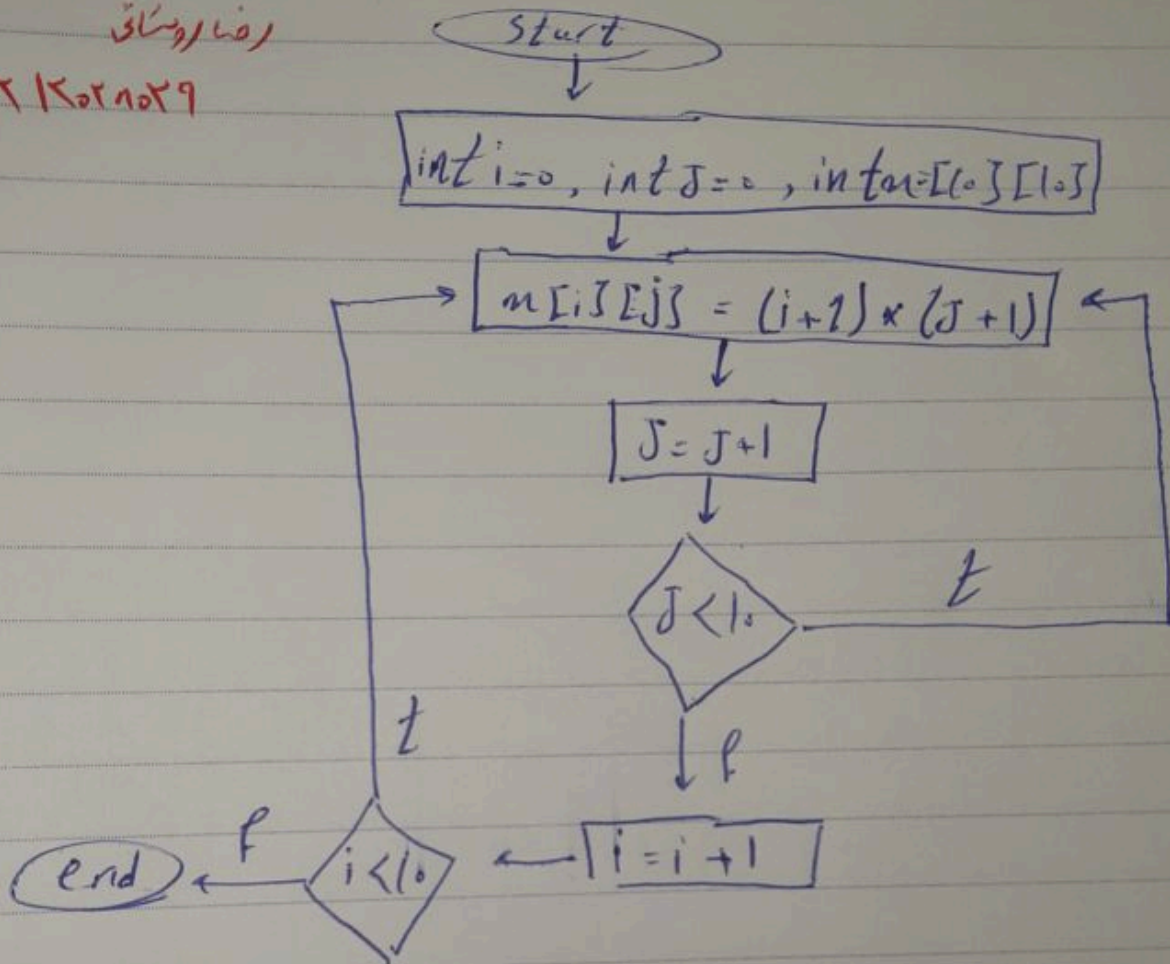 رضا روستائی
start
int i=0, int J=0, int n=[10][10]
n[i][j] = (i+1) * (J+1)
J = J+1
J<10
t
t
f
i = i+1
i<10
f
end